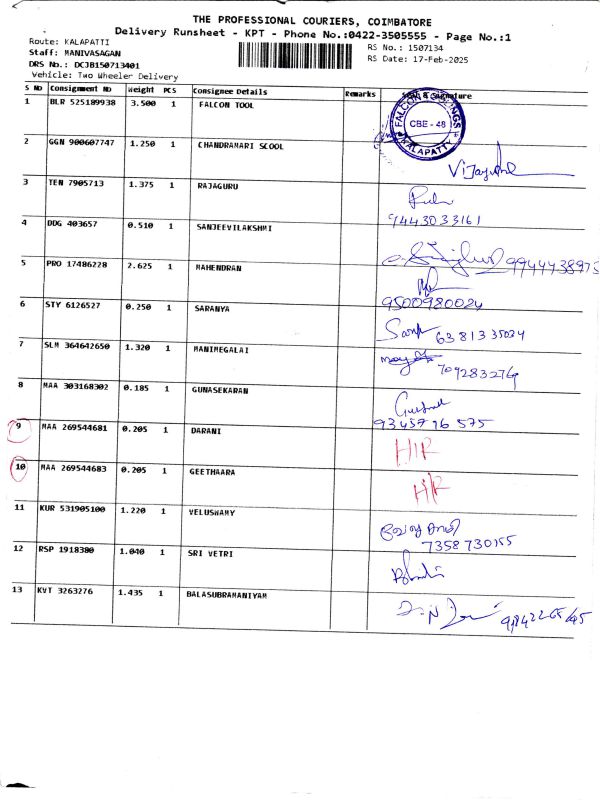 THE PROFESSIONAL COURIERS, COIMBATORE
Delivery Runsheet - KPT - Phone No.:0422-3505555 - Page No.:1
Route: KALAPATTI
RS No.: 1507134
Staff: MANIVASAGAN
RS Date: 17-Feb-2025
DRS No.: DCJB150713401
Vehicle: Two Wheeler Delivery
S No Consignment No Weight PCS Consignee Details Remarks Signature
1 BLR 525189938 3.500 1 FALCON TOOL
FALCON
CBE - 48
KALAPATTY
2 GGN 900607747 1.250 1 CHANDRAMARI SCOOL
3 TEN 7905713 1.375 1 RAJAGURU
9443033161
4 DDG 403657 0.510 1 SANJEEVILAKSHMI
9944438975
5 PRO 17486228 2.625 1 MAHENDRAN
9500980024
6 STY 6126527 0.250 1 SARANYA
6381335024
7 SLM 364642650 1.320 1 MANIMEGALAI
8 MAA 303168302 0.185 1 GUNASEKARAN
9 MAA 269544681 0.205 1 DARANI
10 MAA 269544683 0.205 1 GEETHAARA
11 KUR 531905100 1.220 1 VELUSWAMY
7358730155
12 RSP 1918380 1.040 1 SRI VETRI
13 KVT 3263276 1.435 1 BALASUBRAMANIYAM